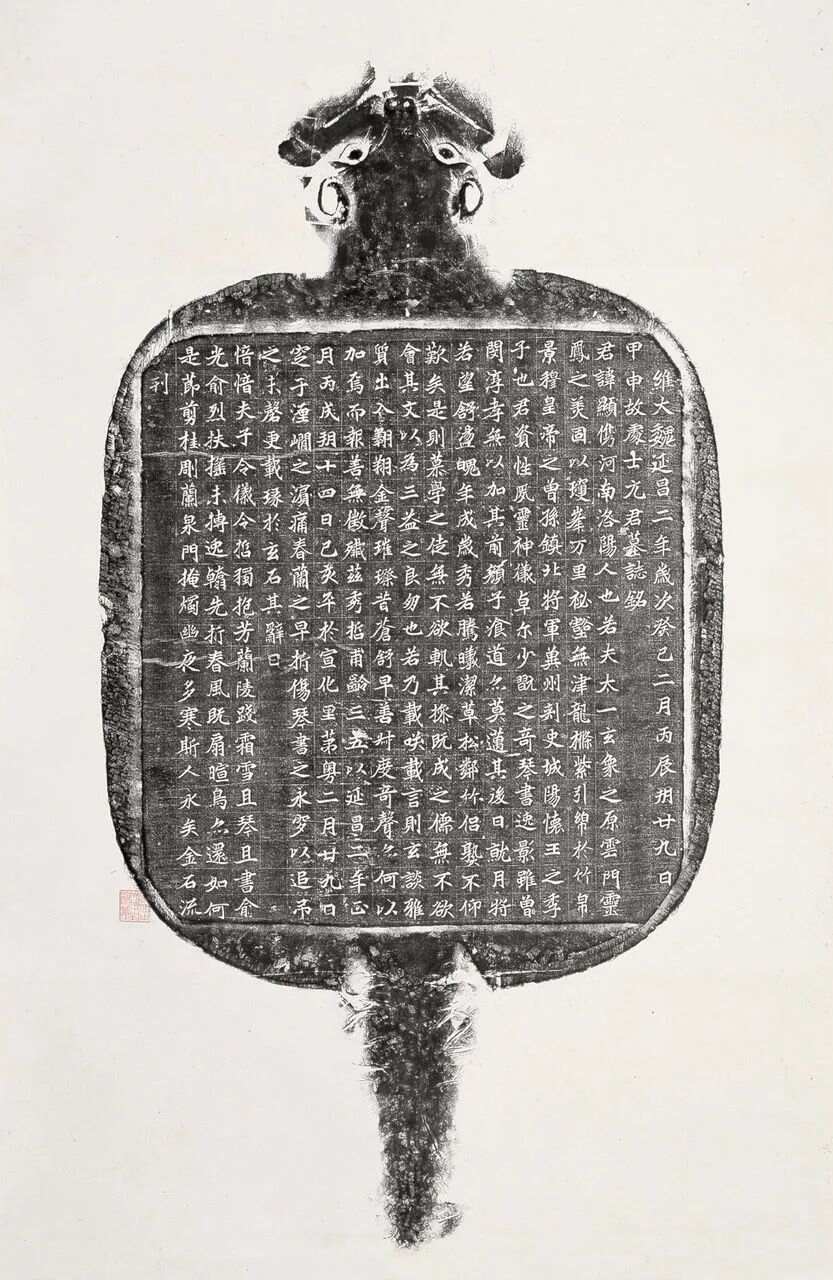 維大魏延昌二年歲次癸巳二月丙辰朔廿九日
甲申故處士元君墓誌銘
君諱顯儁河南洛陽人也若夫太一玄象之原雲門靈
鳳之美固以瓊峯万里祕壑無津龍樠紫引綿於竹帛
景穆皇帝之曾孫鎮北將軍冀州刺史城陽懷王之季
子也君資性夙靈神儀卓尔少翫之奇琴書逸影雖曾
閔淳孝無以加其前顏子湌道亦莫邁其後日就月將
若望舒盪魄年成歲秀若騰曦潔草松鄰竹侶孰不仰
歎矣是則慕學之徒無不欲軌其操既成之儒無不欲
會其文以為三益之良朋也若乃載咲載言則玄談雅
質出入翱翔金聲璀璨昔蒼舒早善叔度奇聲亦何以
加焉而報善無徵殲茲秀哲甫齡三五以延昌二年正
月丙戌朔十四日己亥卒於宣化里第粵二月廿九日
窆于瀍澗之濱痛春蘭之早折傷琴書之永穸以追弔
之未罄更載琢於玄石其辭曰
愔愔夫子令儀令哲獨抱芳蘭陵踐霜雪且琴且書俞
光俞烈扶搖未搏逸翰先折春風既扇暄鳥亦還如何
是節剪桂彫蘭泉門掩燭幽夜多寒斯人永矣金石流
刊